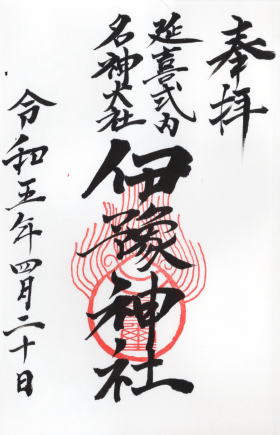 奉拝
延喜式内
名神大社
伊豫神社
令和五年四月二十日